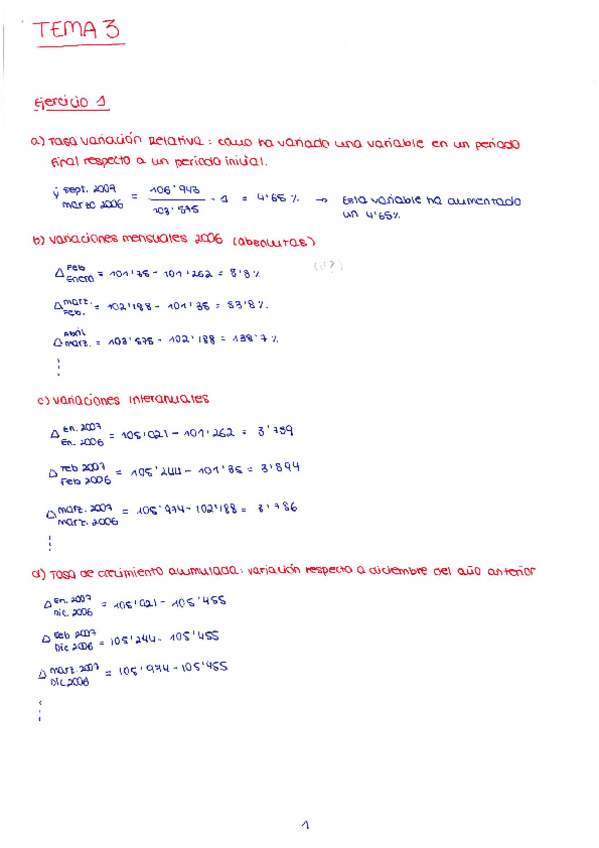 TEMA 3
Ejercicio 1
a) Tasa variación Relativa: como ha variado una variable en un periodo
final respecto a un periodo inicial.
sept. 2007 / marzo 2006 = 106'943 / 103'575 - 1 = 4'65 % → Esta variable ha aumentado
un 4'65%
b) variaciones mensuales 2006 (absolutas)
Δ Feb / Enero = 101'35 - 101'262 = 8'8 % (¿?)
Δ marz. / Feb. = 102'188 - 101'35 = 83'8 %.
Δ Abril / marz. = 103'575 - 102'188 = 138'7 %
c) variaciones interanuales
Δ En. 2007 / En. 2006 = 105'021 - 101'262 = 3'759
Δ Feb 2007 / Feb 2006 = 105'244 - 101'35 = 3'894
Δ marz. 2007 / marz. 2006 = 105'974 - 102'188 = 3'786
d) Tasa de crecimiento acumulada: variación respecto a diciembre del año anterior
Δ En. 2007 / Dic. 2006 = 105'021 - 105'455
Δ Feb 2007 / Dic 2006 = 105'244 - 105'455
Δ marz. 2007 / Dic 2006 = 105'974 - 105'455
1